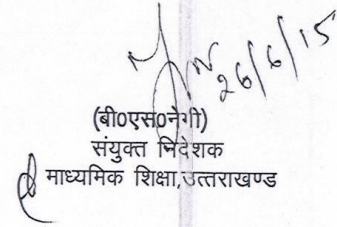 26/6/15
(बी0एस0नेगी)
संयुक्त निदेशक
माध्यमिक शिक्षा,उत्तराखण्ड